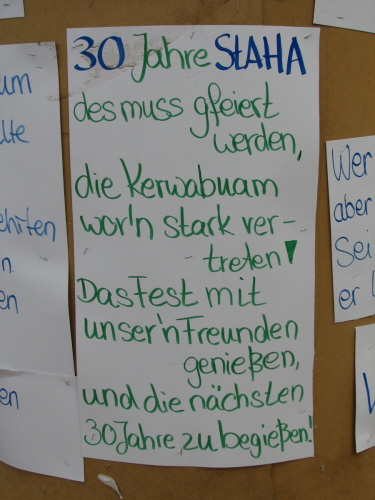 30 Jahre StAHA
des muss gfeiert
werden,
die Kerwabuam
wor'n stark ver-
treten!
Das Fest mit
unser'n Freunden
genießen,
und die nächsten
30 Jahre zu begießen!
um
lte
ehrten
n
en
en
Wer
aber
Sei
er